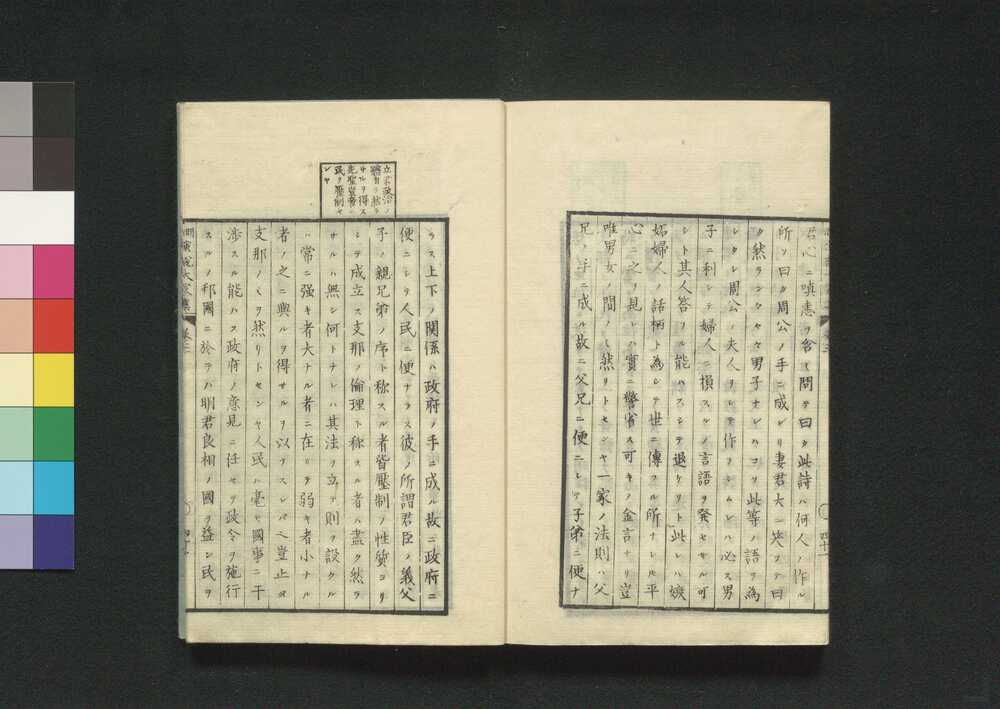 君心ニ嗔恚ヲ含ミ問テ曰ク此詩ハ何人ノ作ル
所ソ曰ク周公ノ手ニ成レリ妻君大ニ笑フテ曰
ク然ランクヤ々男子ナレハコソ此等ノ語ヲ為
シタレ周公ノ夫人ヲシテ作ラシムレハ必ス男
子ニ利シテ婦人ニ損スルノ言語ヲ発セサル可
シト其人答フル能ハスシテ退ケリト此レハ嫉
妬婦人ノ話柄ト為シテ世ニ傳フル所ナレル平
心ニ之ヲ見レハ實ニ警省ス可キノ金言ナリ豈
唯男女ノ間ノミ然リトセンヤ一家ノ法則ハ父
兄ノ手ニ成ル故ニ父兄ニ便ニシテ子弟ニ便ナ
立君政治ノ
弊習ヲ然ラ
サルヲ得ス
先聖豈常ニ
民ヲ壓制セ
ンヤ
ラス上下ノ關係ハ政府ノ手ニ成ル故ニ政府ニ
便ニシテ人民ニ便ナラス彼ノ所謂君臣ノ義父
子ノ親兄弟ノ序ト称スル者皆壓制ノ性質ヨリ
シテ成立ス支那ノ倫理ト称スル者ハ盡ク然ラ
サルハ無シ何トナレハ其法ヲ立テ則ヲ設クル
ハ常ニ强キ者大ナル者ニ在リテ弱キ者小ナル
者ノ之ニ與ルヲ得サルヲ以テスレハナリ豈止タ
支那ノミヲ然リトセンヤ人民ハ毫モ國事ニ干
渉スル能ハス政府ノ意見ニ任セテ政令ヲ施行
スルノ邦國ニ於テハ明君良相ノ國ヲ益シ民ヲ
演説大家集 巻三